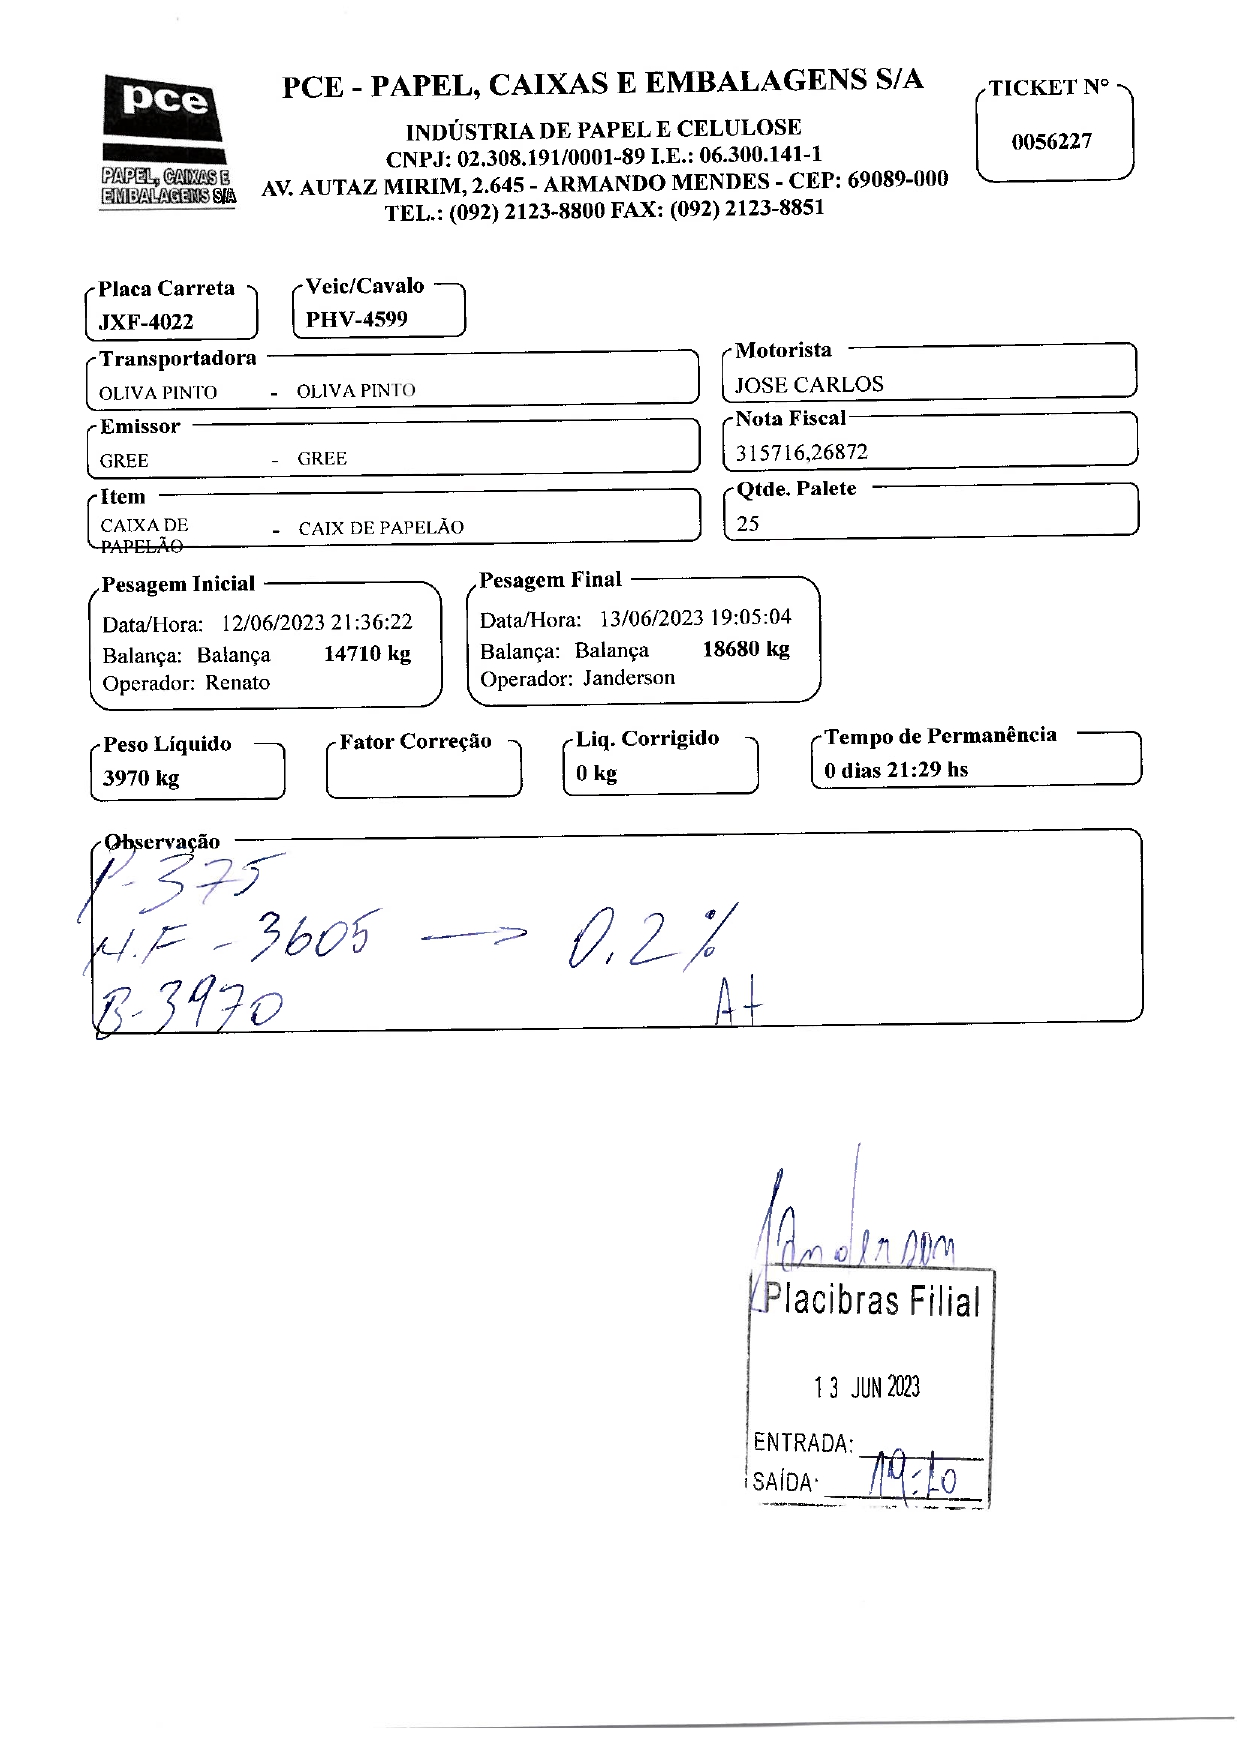 pce
PAPEL, CAIXAS E
EMBALAGENS S/A
PCE - PAPEL, CAIXAS E EMBALAGENS S/A
INDÚSTRIA DE PAPEL E CELULOSE
CNPJ: 02.308.191/0001-89 I.E.: 06.300.141-1
AV. AUTAZ MIRIM, 2.645 - ARMANDO MENDES - CEP: 69089-000
TEL.: (092) 2123-8800 FAX: (092) 2123-8851
TICKET N°
0056227
Placa Carreta
JXF-4022
Veic/Cavalo
PHV-4599
Transportadora
OLIVA PINTO - OLIVA PINTO
Motorista
JOSE CARLOS
Emissor
GREE - GREE
Nota Fiscal
315716,26872
Item
CAIXA DE
PAPELÃO
- CAIX DE PAPELÃO
Qtde. Palete
25
Pesagem Inicial
Data/Hora: 12/06/2023 21:36:22
Balança: Balança 14710 kg
Operador: Renato
Pesagem Final
Data/Hora: 13/06/2023 19:05:04
Balança: Balança 18680 kg
Operador: Janderson
Peso Líquido
3970 kg
Fator Correção
Liq. Corrigido
0 kg
Tempo de Permanência
0 dias 21:29 hs
Observação
P-375
N.F - 3605 → 0.2%
B-3970
A+
Janderson
Placibras Filial
13 JUN 2023
ENTRADA:
SAÍDA: 19:10